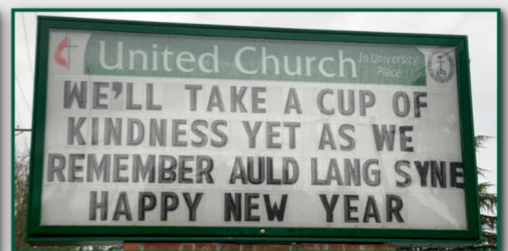 United Church
In University
Place
WE'LL TAKE A CUP OF
KINDNESS YET AS WE
REMEMBER AULD LANG SYNE
HAPPY NEW YEAR